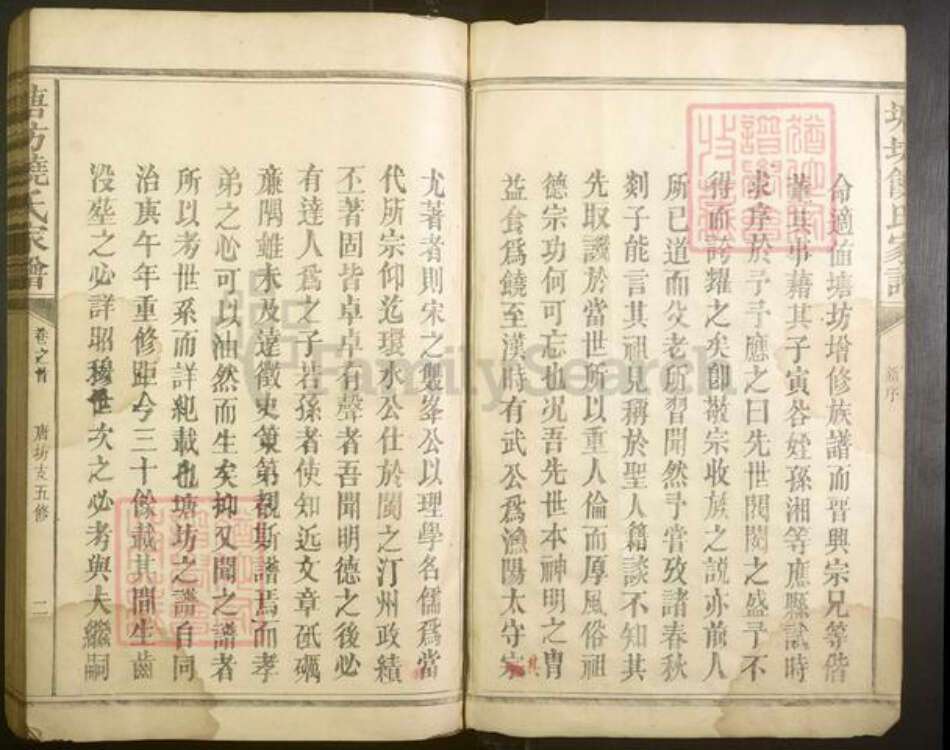 塘坊饒氏家譜
舊序
命適值塘坊增修族譜而晋興宗兄等偕
董其事藉其子寅谷姪孫湘等應縣試時
求序於予予應之曰先世閥閱之盛予不
得而誇耀之矣卽敬宗收族之説亦前人
所已道而父老所習聞然予嘗攷諸春秋
剡子能言其祖見稱於聖人籍談不知其
先取譏於當世所以重人倫而厚風俗祖
德宗功何可忘也况吾先世本神明之胄
益食爲饒至漢時有武公爲漁陽太守宋
尤著者則宋之雙峯公以理學名儒爲當
代所宗仰迄環水公仕於閩之汀州政績
丕著固皆卓卓有聲者吾聞明德之後必
有達人爲之子若孫者使知近文章砥礪
廉隅雖未及達徵史策第觀斯譜焉而孝
弟之心可以油然而生矣抑又聞之譜者
所以考世系而詳紀載也塘坊之譜自同
治庚午年重修距今三十餘載其間生齒
没塟之必詳昭穆世次之必考與夫繼嗣
塘坊饒氏家譜
卷之首
唐坊支五修
二
FamilySearch